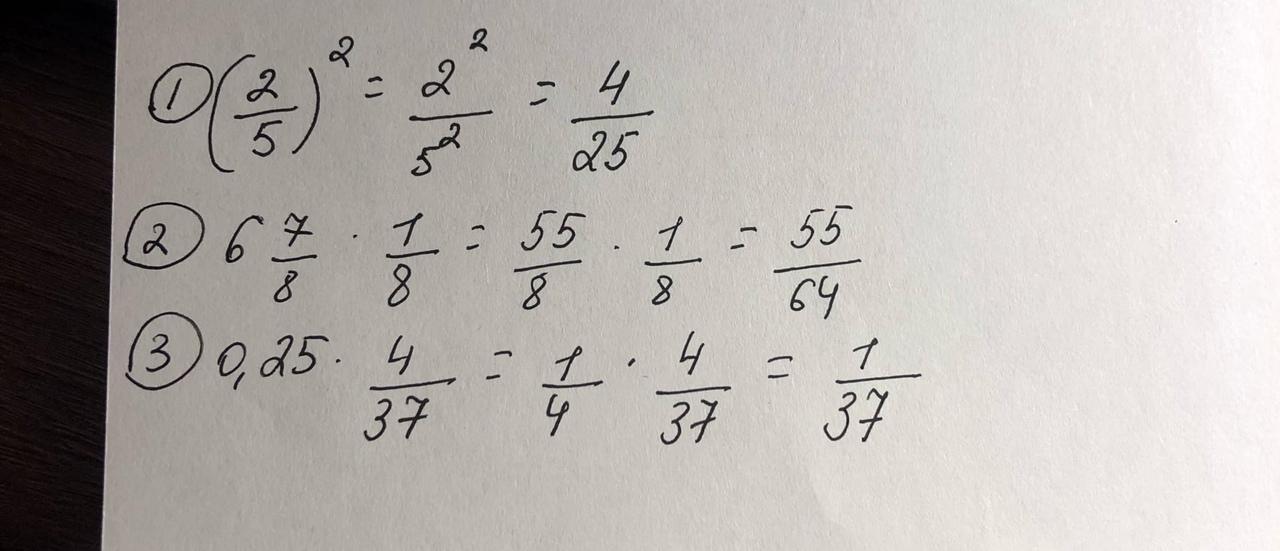 ① (2/5)² = 2²/5² = 4/25
② 6 7/8 · 1/8 = 55/8 · 1/8 = 55/64
③ 0,25 · 4/37 = 1/4 · 4/37 = 1/37